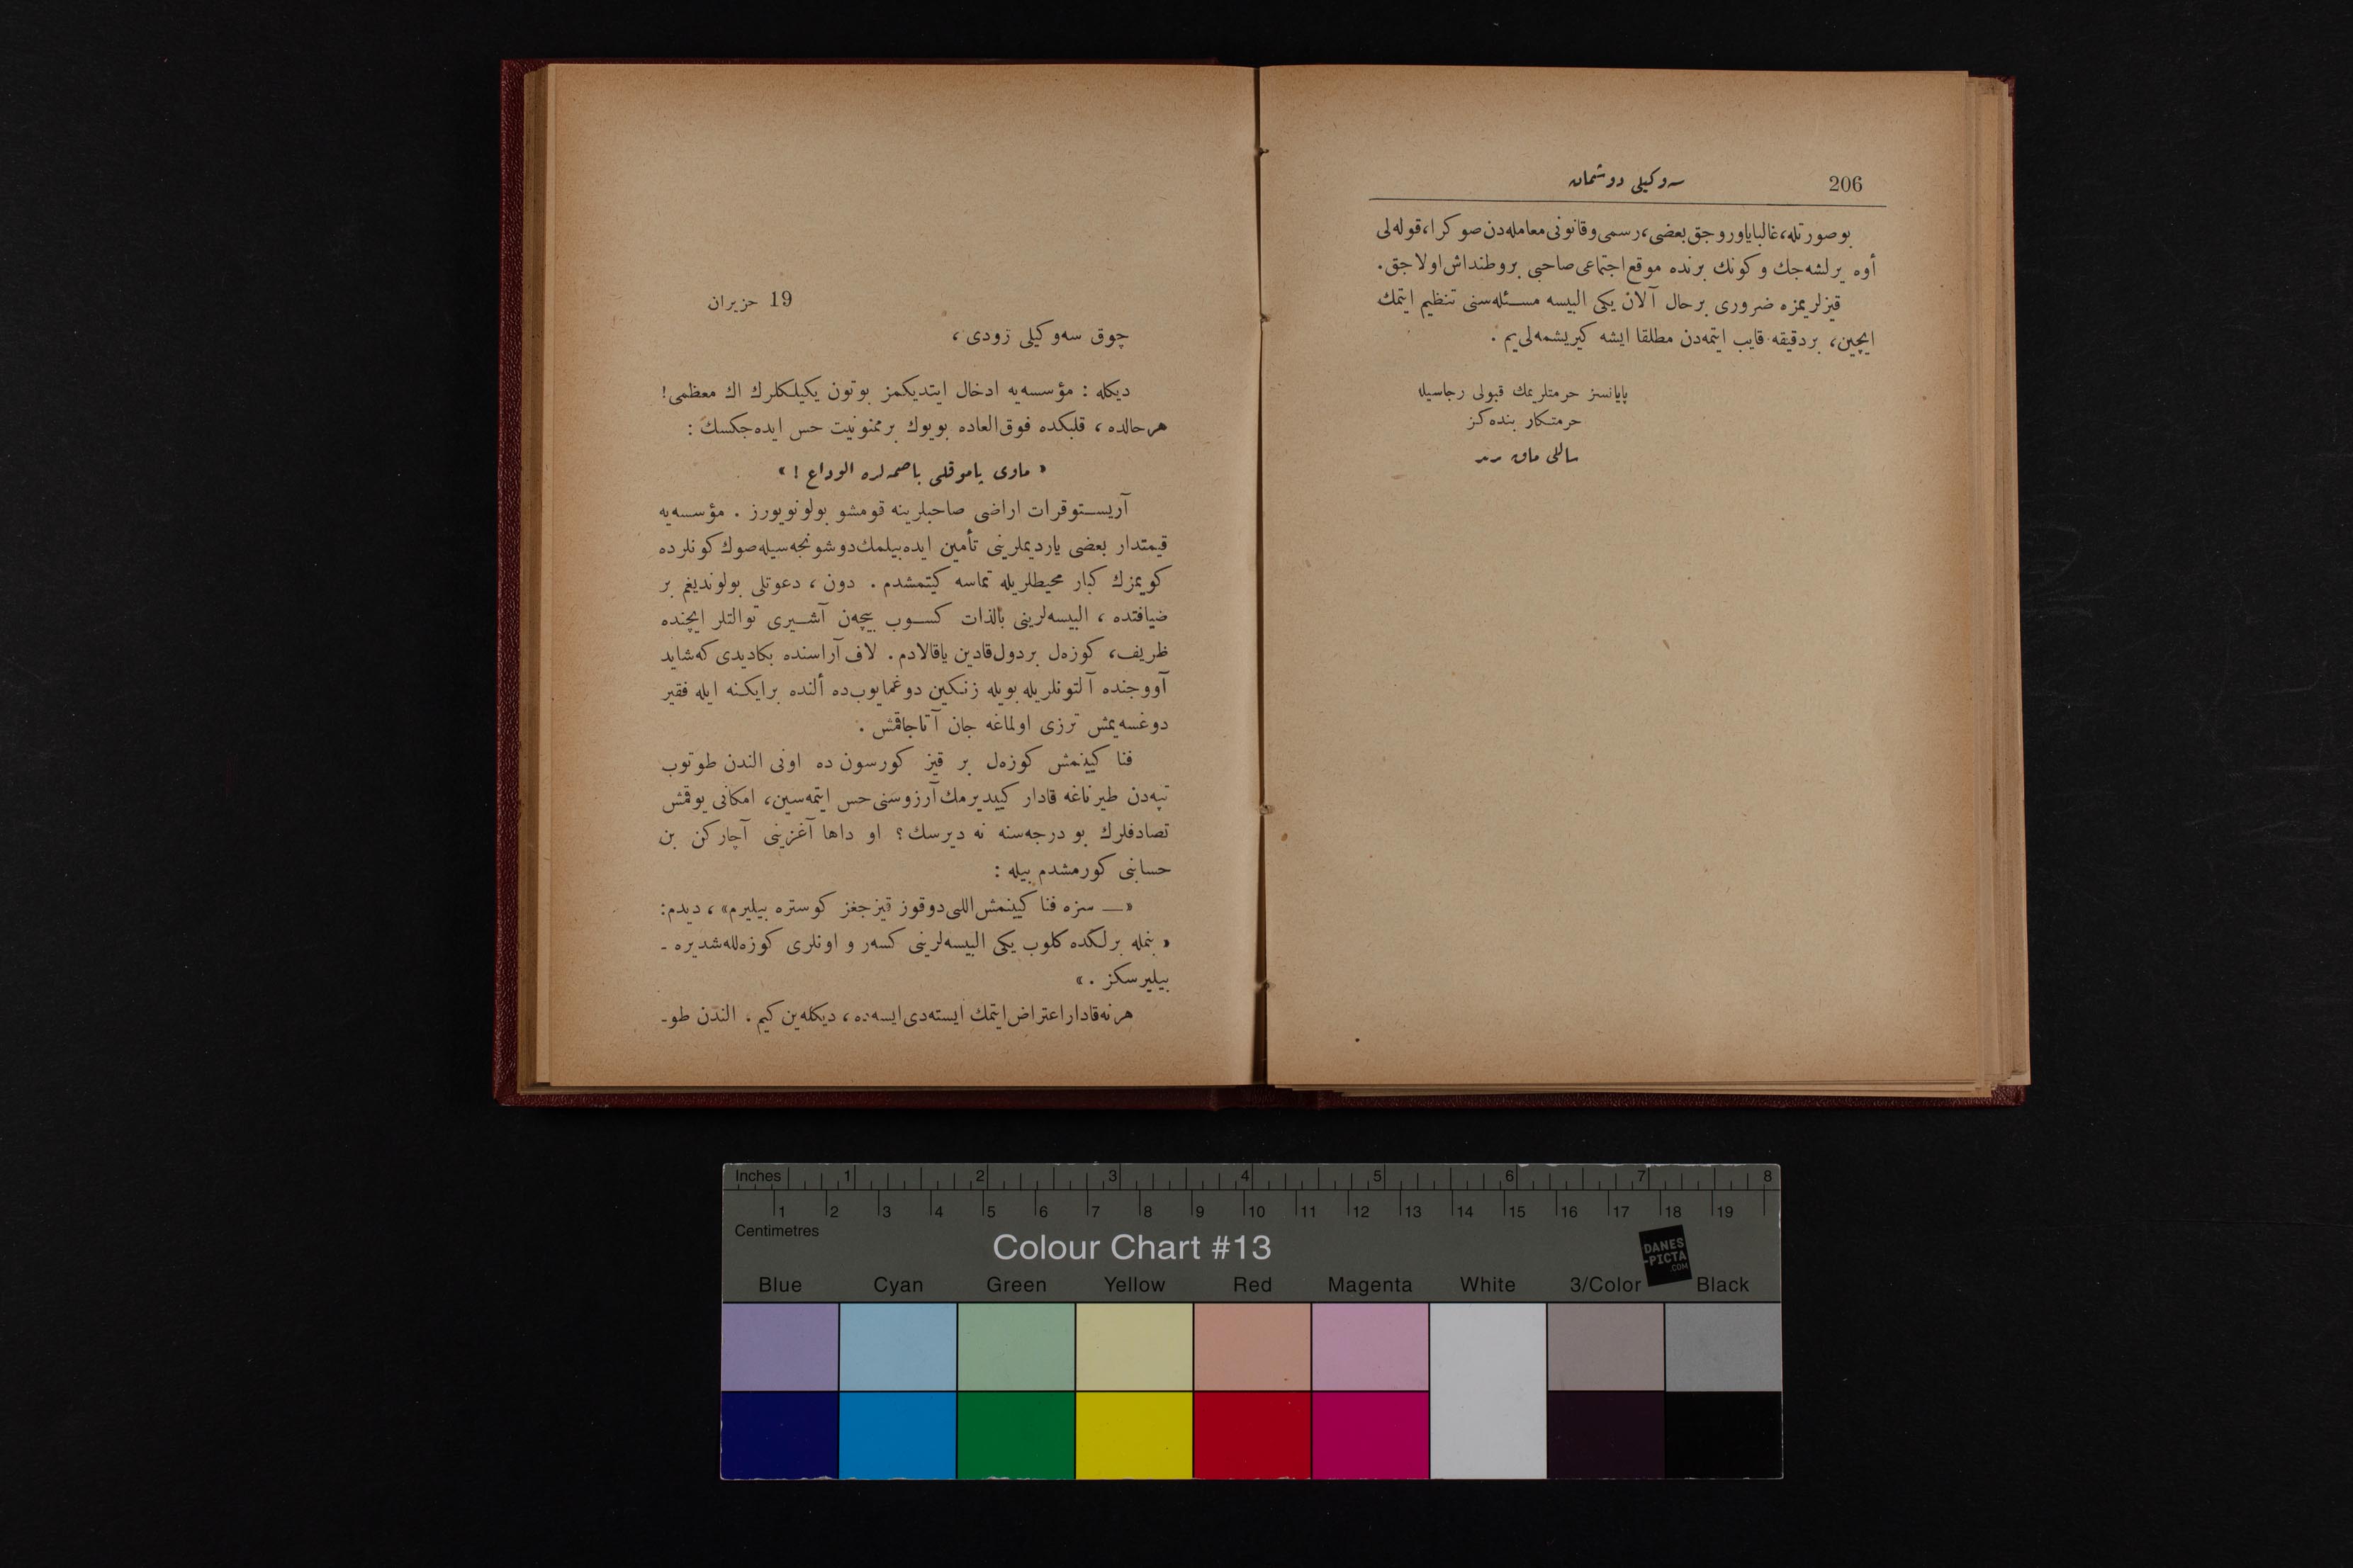 206
سه‌وكیلی دوشمان
بوصورتله، غالبا یاوروجق بعضی، رسمی و قانونی معامله‌دن صوكرا، قوله‌لی
أوه یرلشه‌جك و كونك برنده موقع اجتماعی صاحبی بر وطنداش اولاجق.
قیزلریمزه ضروری بر حال آلان یكی البیسه مسئله‌سنی تنظیم ایتمك
ایچین، بردقیقه قایب ایتمه‌دن مطلقا ایشه كیریشمه‌لی‌یم .
پایانسز حرمتلریمك قبولی رجاسیله
حرمتكار بنده‌كز
ساللی ماق برید
19 حزیران
چوق سه‌وكیلی زودی ،
دیكله : مؤسسه‌یه ادخال ایتدیكمز بوتون یكیلكلرك اك معظمی !
هرحالده ، قلبكده فوق‌العاده بویوك بر ممنونیت حس ایده‌جكسك :
« ماوی پاموقلی باصمه‌لره الوداع ! »
آریستوقرات اراضی صاحبلرینه قومشو بولونویورز . مؤسسه‌یه
قیمتدار بعضی یاردیملرینی تأمین ایده‌بیلمك دوشونجه‌سیله صوك كونلرده
كویمزك كبار محیطلریله تماسه كیتمشدم . دون ، دعوتلی بولوندیغم بر
ضیافتده ، البیسه‌لرینی بالذات كسوب بیچه‌ن آشیری توالتلر ایچنده
ظریف، كوزه‌ل بر دول قادین یاقالادم . لاف آراسنده بكا دیدی كه شاید
آووجنده آلتونلریله بویله زنكین دوغمایوب ده ألنده بر ایكنه ایله فقیر
دوغسه‌یمش ترزی اولماغه جان آتاجاقمش .
فنا كیینمش كوزه‌ل بر قیز كورسون ده اونی الندن طوتوب
تپه‌دن طیرناغه قادار كییدیرمك آرزوسنی حس ایتمه‌سین، امكانی یوقمش
تصادفلرك بو درجه‌سنه نه دیرسك؟ او داها آغزینی آچاركن بن
حسابنی كورمشدم بیله :
«— سزه فنا كیینمش اللی دوقوز قیزجغز كوستره بیلیرم» ، دیدم :
« بنمله برلكده كلوب یكی البیسه‌لرینی كسه‌ر و اونلری كوزه‌لله‌شدیره -
بیلیرسكز . »
هر نه قادار اعتراض ایتمك ایسته‌دی ایسه ده ، دیكله‌ین كیم . الندن طو-
Inches 1 2 3 4 5 6 7 8
1 2 3 4 5 6 7 8 9 10 11 12 13 14 15 16 17 18 19
Centimetres
Colour Chart #13
DANES
-PICTA
.COM
Blue Cyan Green Yellow Red Magenta White 3/Color Black